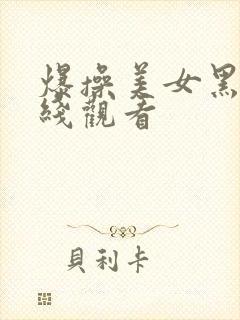 爆操美女黑
綫觀看
貝利卡